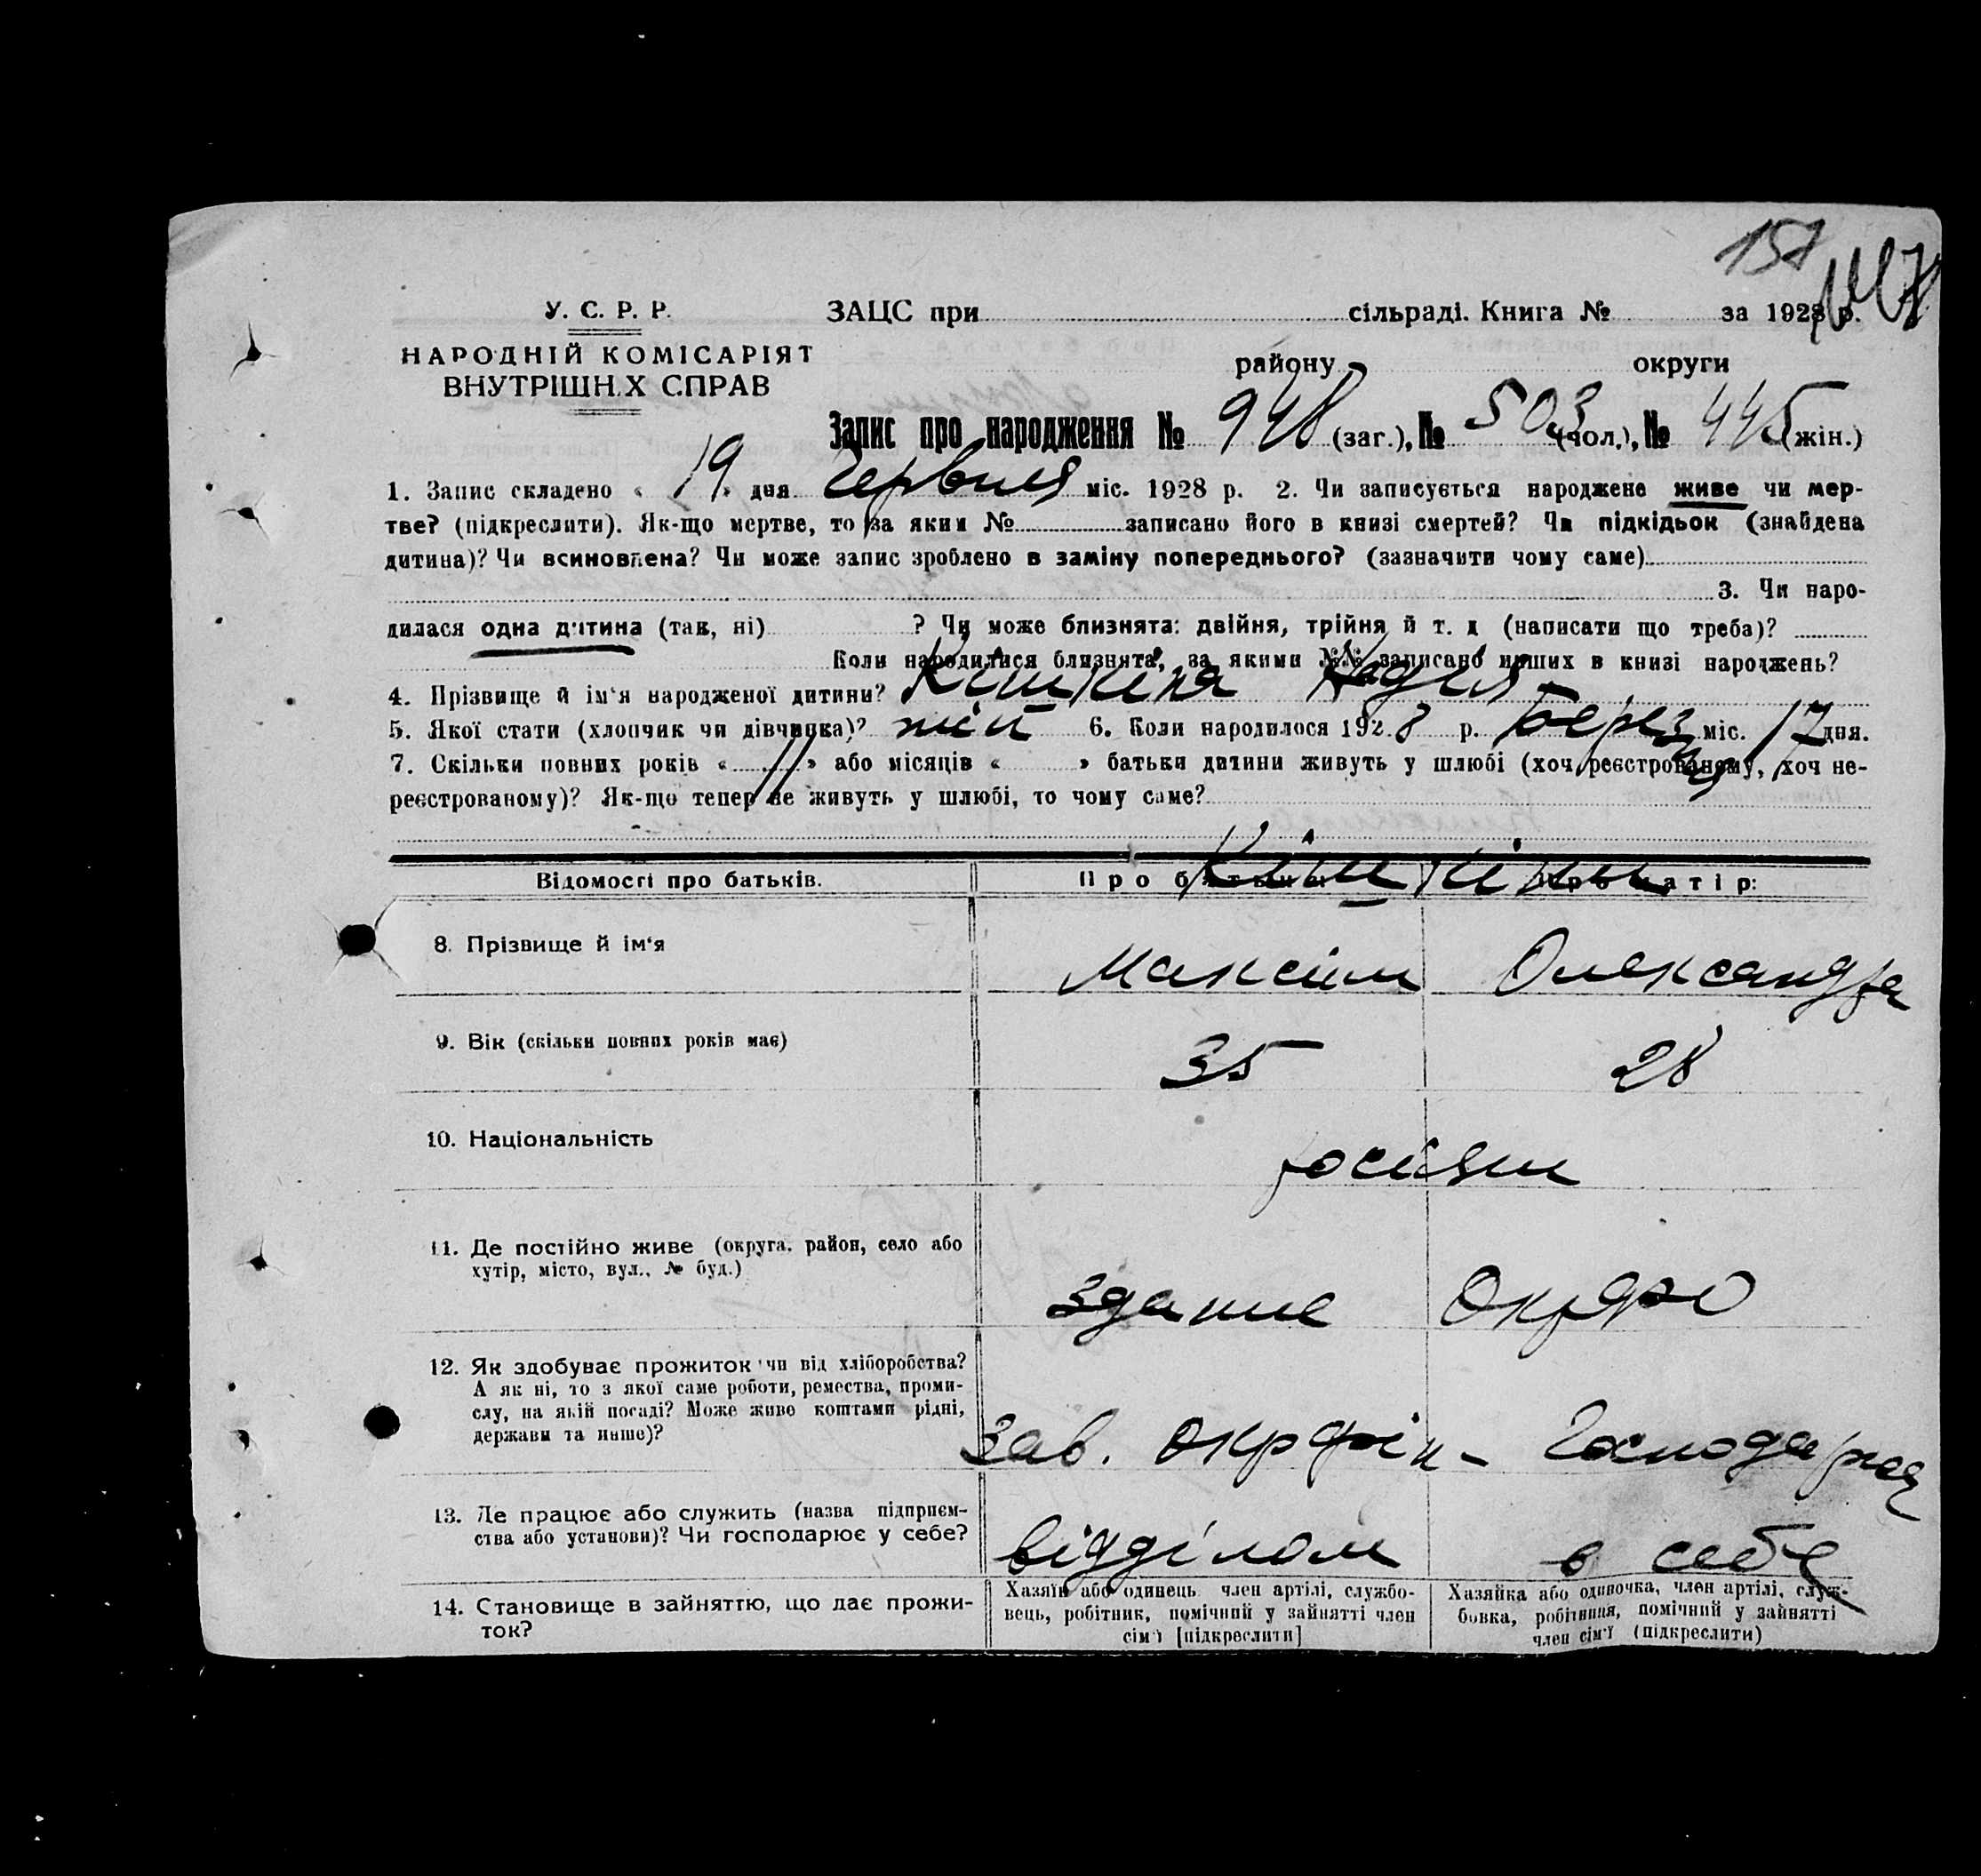 151
У. С. Р. Р.
НАРОДНІЙ КОМІСАРІЯТ
ВНУТРІШН.Х СПРАВ
ЗАЦС при сільраді. Книга № за 1928 р.
району округи
Запис про народження № 948 (заг.), № 503 (чол.), № 445 (жін.)
1. Запис складено « 19 » дня Червня міс. 1928 р. 2. Чи записується народжене живе чи мер-
тве? (підкреслити). Як-що мертве, то за яким № записано його в книзі смертей? Чи підкідьок (знайдена
дитина)? Чи всиновлена? Чи може запис зроблено в заміну попереднього? (зазначити чому саме)
3. Чи наро-
дилася одна дитина (так, ні) ? Чи може близнята: двійня, трійня й т. д (написати що треба)?
Коли народилися близнята, за якими №№ записано инших в книзі народжень?
4. Прізвище й ім'я народженої дитини? Кішкіна Надія
5. Якої стати (хлопчик чи дівчинка)? жін 6. Коли народилося 1928 р. Березня міс. 17 дня.
7. Скільки повних років « 11 » або місяців « » батьки дитини живуть у шлюбі (хоч реєстрованому, хоч не-
реєстрованому)? Як-що тепер не живуть у шлюбі, то чому саме?
Відомості про батьків. Про батька: Про матір:
Кішкіни
8. Прізвище й ім'я Максим Олександра
9. Вік (скільки повних років має) 35 28
10. Національність росіяни
11. Де постійно живе (округа, район, село або
хутір, місто, вул., № буд.) здание ОкрФО
12. Як здобуває прожиток чи від хліборобства?
А як ні, то з якої саме роботи, ремества, проми-
слу, на якій посаді? Може живе коштами рідні,
держави та инше)? Зав. окрфін- Господарює
13. Де працює або служить (назва підприєм-
ства або установи)? Чи господарює у себе? відділом в себе
14. Становище в зайняттю, що дає прожи-
ток?
Хазяїн або одинець член артілі, службо-
вець, робітник, помічний у зайнятті член
сім'ї [підкреслити]
Хазяйка або одиночка, член артілі, служ-
бовка, робітниця, помічний у зайнятті
член сім'ї (підкреслити)